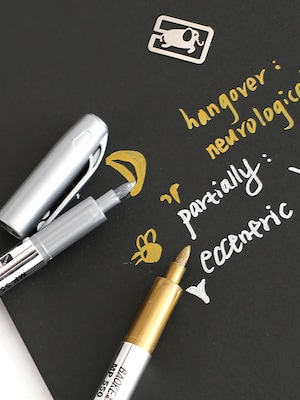 hangover:
neurologica
partially:
eccentric
BAOKE
MP 550